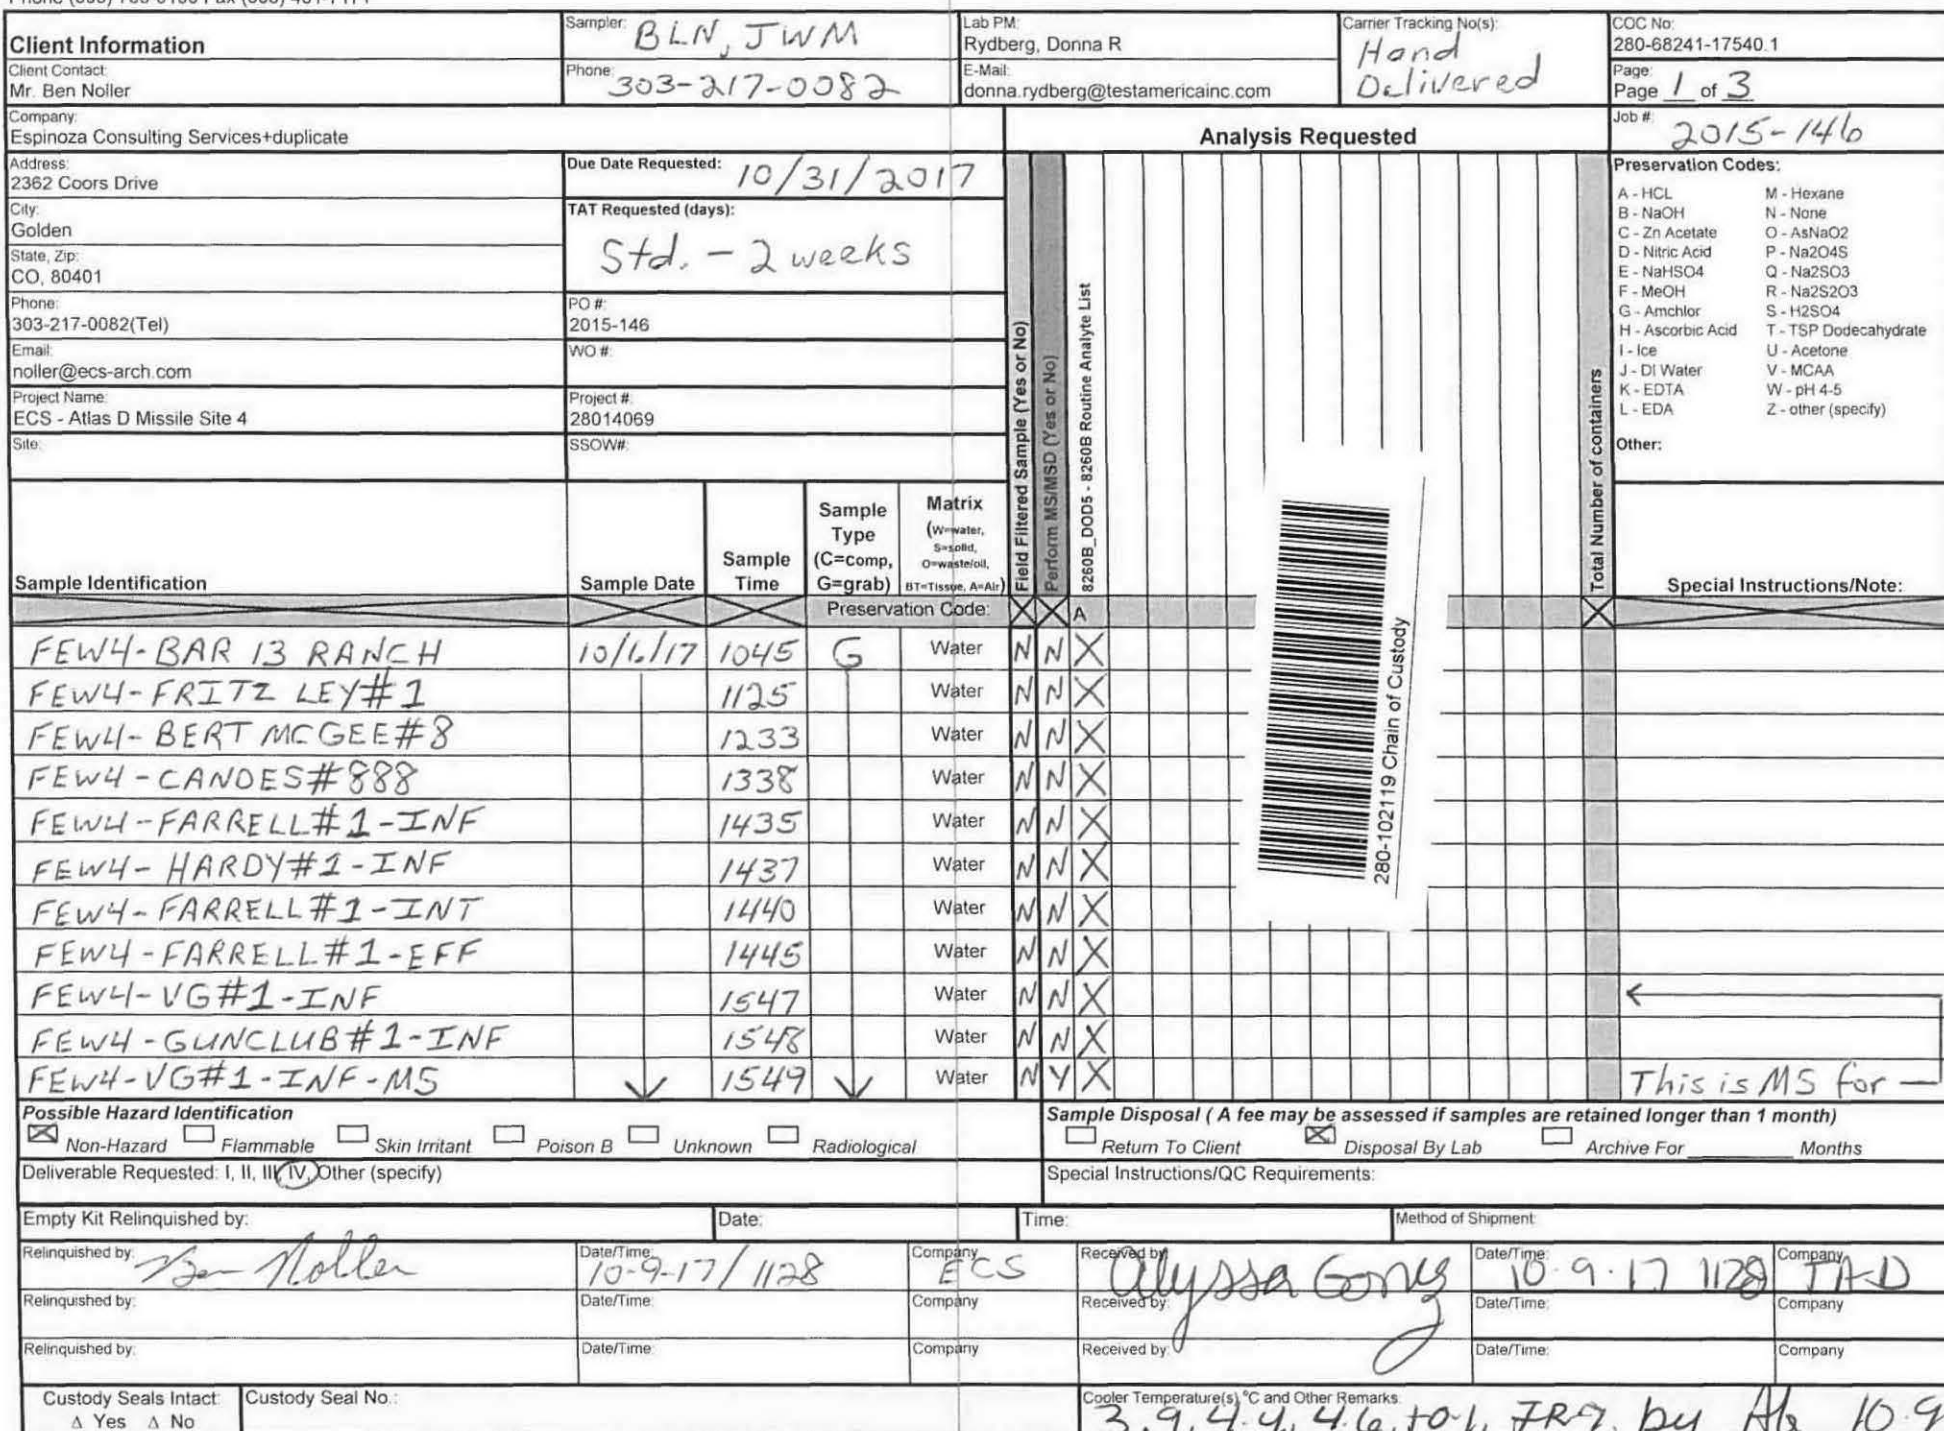 Client Information
Sampler: BLN, JWM
Lab PM: Rydberg, Donna R
Carrier Tracking No(s): Hand Delivered
COC No: 280-68241-17540.1
Client Contact: Mr. Ben Noller
Phone: 303-217-0082
E-Mail: donna.rydberg@testamericainc.com
Page: Page 1 of 3
Company: Espinoza Consulting Services+duplicate
Analysis Requested
Job #: 2015-146
Address: 2362 Coors Drive
Due Date Requested: 10/31/2017
City: Golden
TAT Requested (days): Std. - 2 weeks
State, Zip: CO, 80401
Phone: 303-217-0082(Tel)
PO #: 2015-146
Email: noller@ecs-arch.com
WO #:
Project Name: ECS - Atlas D Missile Site 4
Project #: 28014069
Site:
SSOW#:
Preservation Codes:
A - HCL M - Hexane
B - NaOH N - None
C - Zn Acetate O - AsNaO2
D - Nitric Acid P - Na2O4S
E - NaHSO4 Q - Na2SO3
F - MeOH R - Na2S2O3
G - Amchlor S - H2SO4
H - Ascorbic Acid T - TSP Dodecahydrate
I - Ice U - Acetone
J - DI Water V - MCAA
K - EDTA W - pH 4-5
L - EDA Z - other (specify)
Other:
Field Filtered Sample (Yes or No)
Perform MS/MSD (Yes or No)
8260B_DOD5 - 8260B Routine Analyte List
Total Number of containers
280-102119 Chain of Custody
Sample Identification
Sample Date
Sample Time
Sample Type (C=comp, G=grab)
Matrix (W=water, S=solid, O=waste/oil, BT=Tissue, A=Air)
Special Instructions/Note:
Preservation Code: X X A X
FEW4-BAR 13 RANCH 10/6/17 1045 G Water N N X
FEW4-FRITZ LEY#1 1125 Water N N X
FEW4-BERT MCGEE#8 1233 Water N N X
FEW4-CANOES#888 1338 Water N N X
FEW4-FARRELL#1-INF 1435 Water N N X
FEW4-HARDY#1-INF 1437 Water N N X
FEW4-FARRELL#1-INT 1440 Water N N X
FEW4-FARRELL#1-EFF 1445 Water N N X
FEW4-VG#1-INF 1547 Water N N X
FEW4-GUNCLUB#1-INF 1548 Water N N X
FEW4-VG#1-INF-MS 1549 Water N Y X This is MS for
Possible Hazard Identification
Non-Hazard Flammable Skin Irritant Poison B Unknown Radiological
Sample Disposal ( A fee may be assessed if samples are retained longer than 1 month)
Return To Client Disposal By Lab Archive For Months
Deliverable Requested: I, II, III, IV, Other (specify)
Special Instructions/QC Requirements:
Empty Kit Relinquished by: Date: Time: Method of Shipment:
Relinquished by: Ben Noller Date/Time: 10-9-17/1128 Company ECS Received by: Alyssa Date/Time: 10.9.17 1128 Company TAD
Relinquished by: Date/Time: Company Received by: Date/Time: Company
Relinquished by: Date/Time: Company Received by: Date/Time: Company
Custody Seals Intact: Custody Seal No.:
Δ Yes Δ No
Cooler Temperature(s) °C and Other Remarks:
3.9, 4.4, 4.6, by 10.9